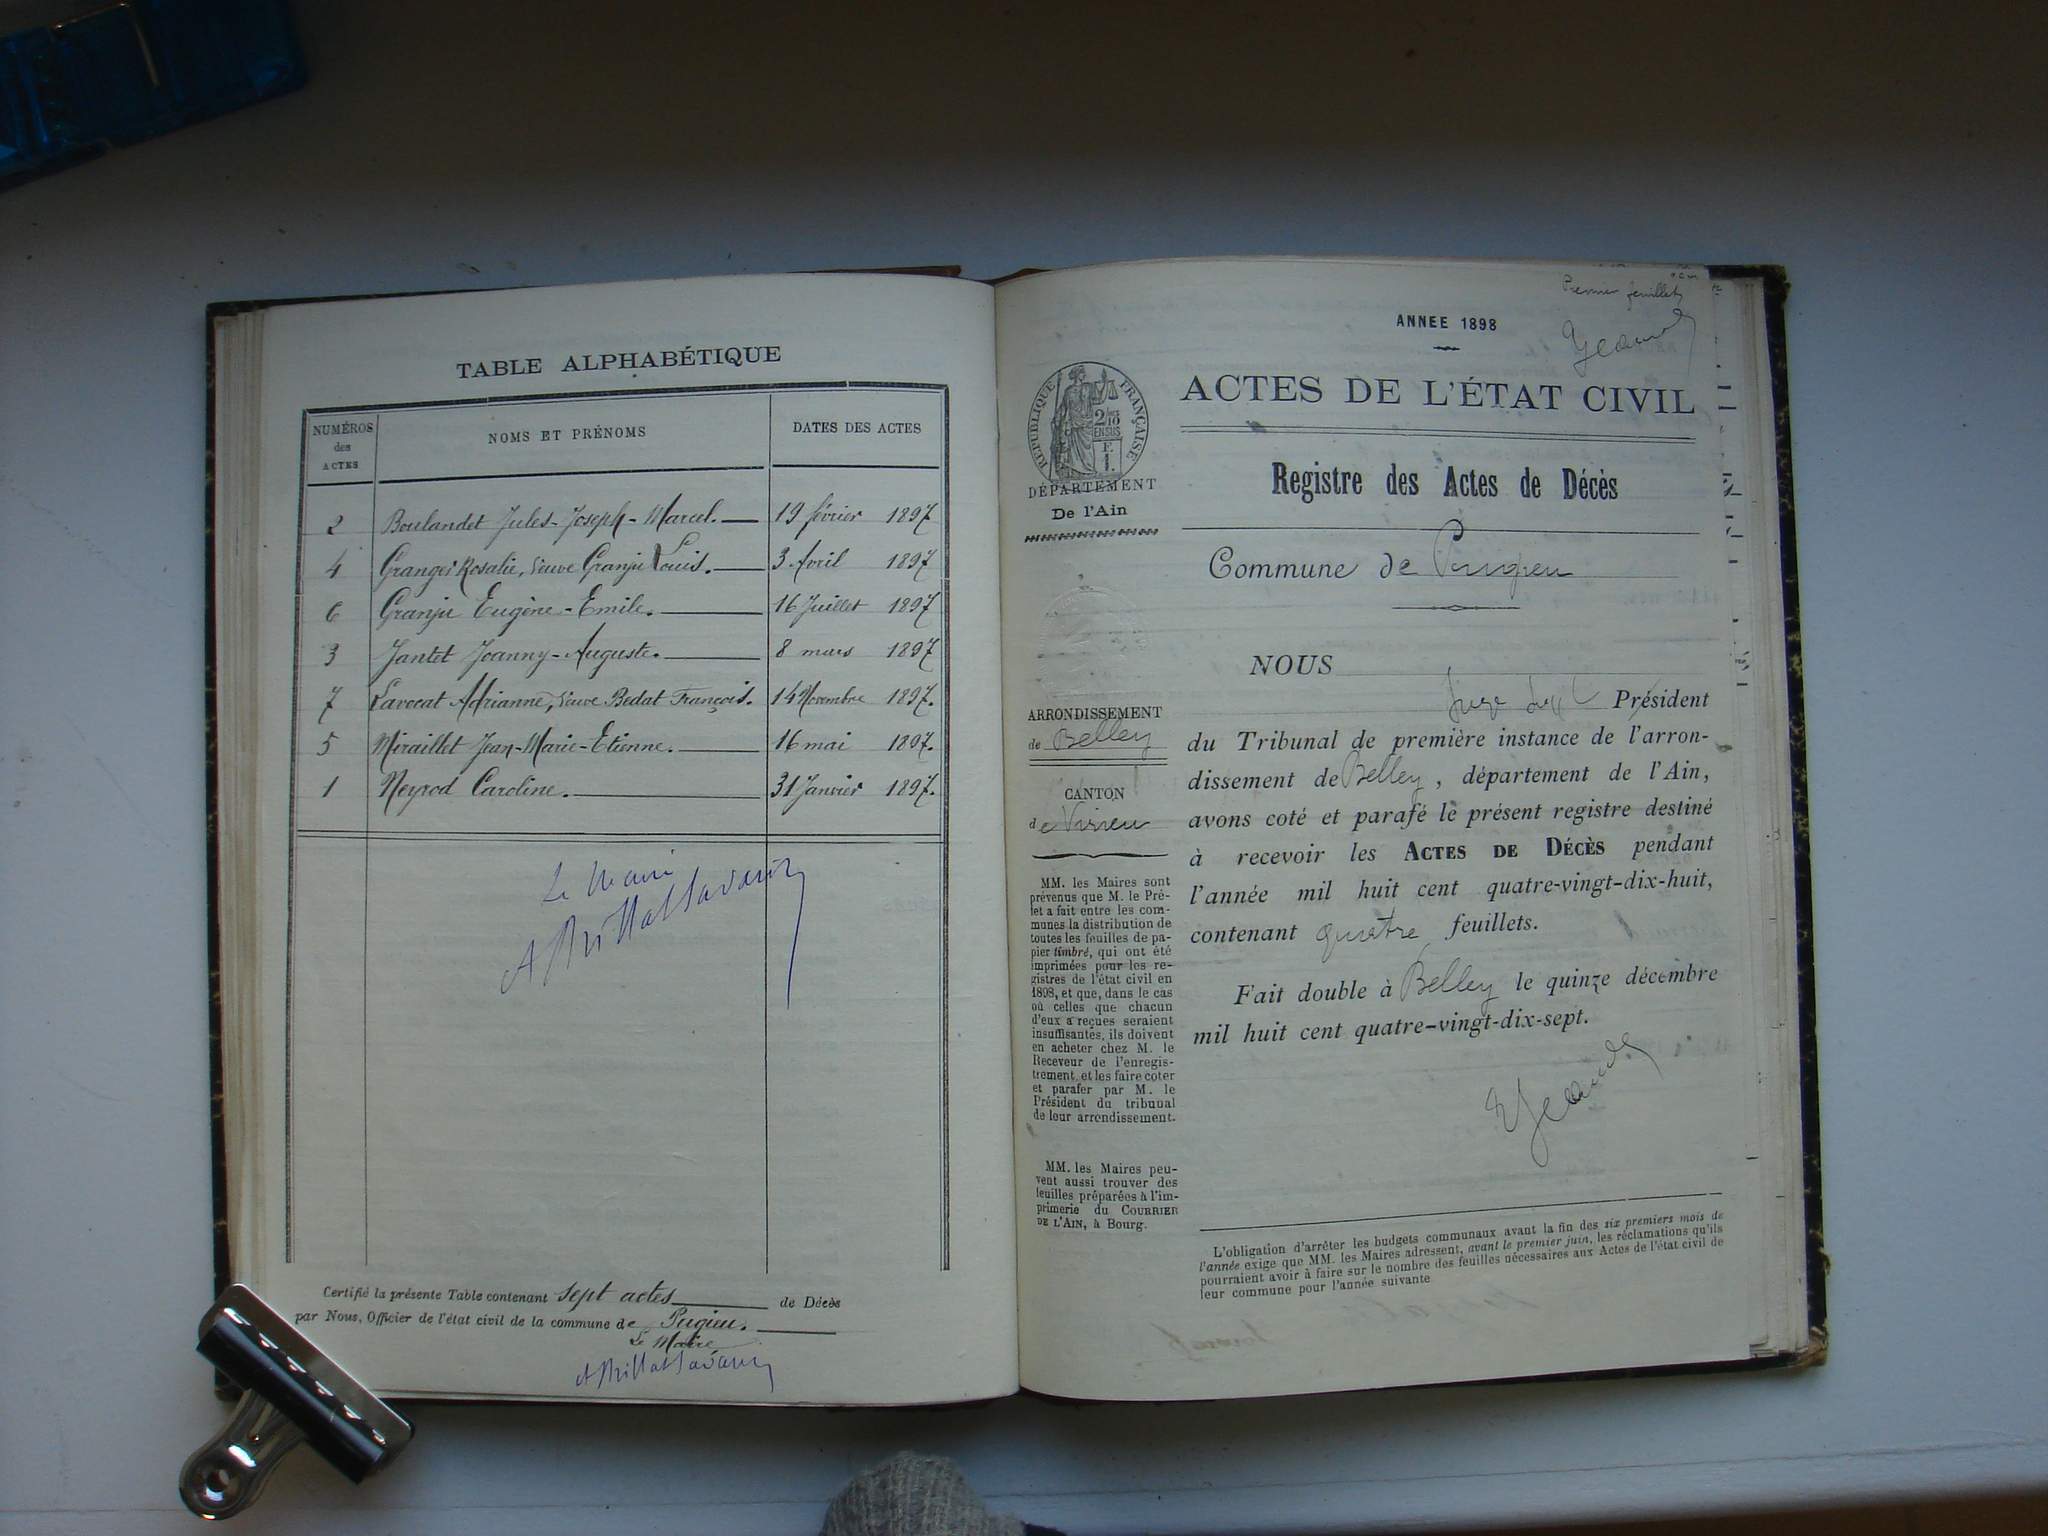 TABLE ALPHABÉTIQUE
NUMÉROS des ACTES
NOMS ET PRÉNOMS
DATES DES ACTES
2 Boulandet Jules-Joseph-Marcel. 19 février 1897
4 Granger Rosalie, veuve Granju Louis. 3 Avril 1897
6 Granju Eugène-Emile. 16 Juillet 1897
3 Jantet Joanny-Auguste. 8 mars 1897
7 Lavocat Adrianne, veuve Bedat François. 14 Novembre 1897.
5 Miraillet Jean-Marie-Etienne. 16 mai 1897.
1 Neyrod Caroline. 31 Janvier 1897.
Le Maire
A Brillat Savarin
Certifié la présente Table contenant sept actes de Décès
par Nous, Officier de l'état civil de la commune de Pugieu.
Le Maire
A Brillat Savarin
Premier feuillet
ANNEE 1898
RÉPUBLIQUE FRANÇAISE
2/10 EN SUS
F.
1.
ACTES DE L'ÉTAT CIVIL
DÉPARTEMENT
De l'Ain
Registre des Actes de Décès
Commune de Pugieu
ARRONDISSEMENT
de Belley
CANTON
de Virieu
MM. les Maires sont
prévenus que M. le Pré-
fet a fait entre les com-
munes la distribution de
toutes les feuilles de pa-
pier timbré, qui ont été
imprimées pour les re-
gistres de l'état civil en
1898, et que, dans le cas
où celles que chacun
d'eux a reçues seraient
insuffisantes, ils doivent
en acheter chez M. le
Receveur de l'enregis-
trement et les faire coter
et parafer par M. le
Président du tribunal
de leur arrondissement.
MM. les Maires peu-
vent aussi trouver des
feuilles préparées à l'im-
primerie du COURRIER
DE L'AIN, à Bourg.
NOUS
Juge suppl Président
du Tribunal de première instance de l'arron-
dissement de Belley, département de l'Ain,
avons coté et parafé le présent registre destiné
à recevoir les ACTES DE DÉCÈS pendant
l'année mil huit cent quatre-vingt-dix-huit,
contenant quatre feuillets.
Fait double à Belley le quinze décembre
mil huit cent quatre-vingt-dix-sept.
L'obligation d'arrêter les budgets communaux avant la fin des six premiers mois de
l'année exige que MM. les Maires adressent, avant le premier juin, les réclamations qu'ils
pourraient avoir à faire sur le nombre des feuilles nécessaires aux Actes de l'état civil de
leur commune pour l'année suivante